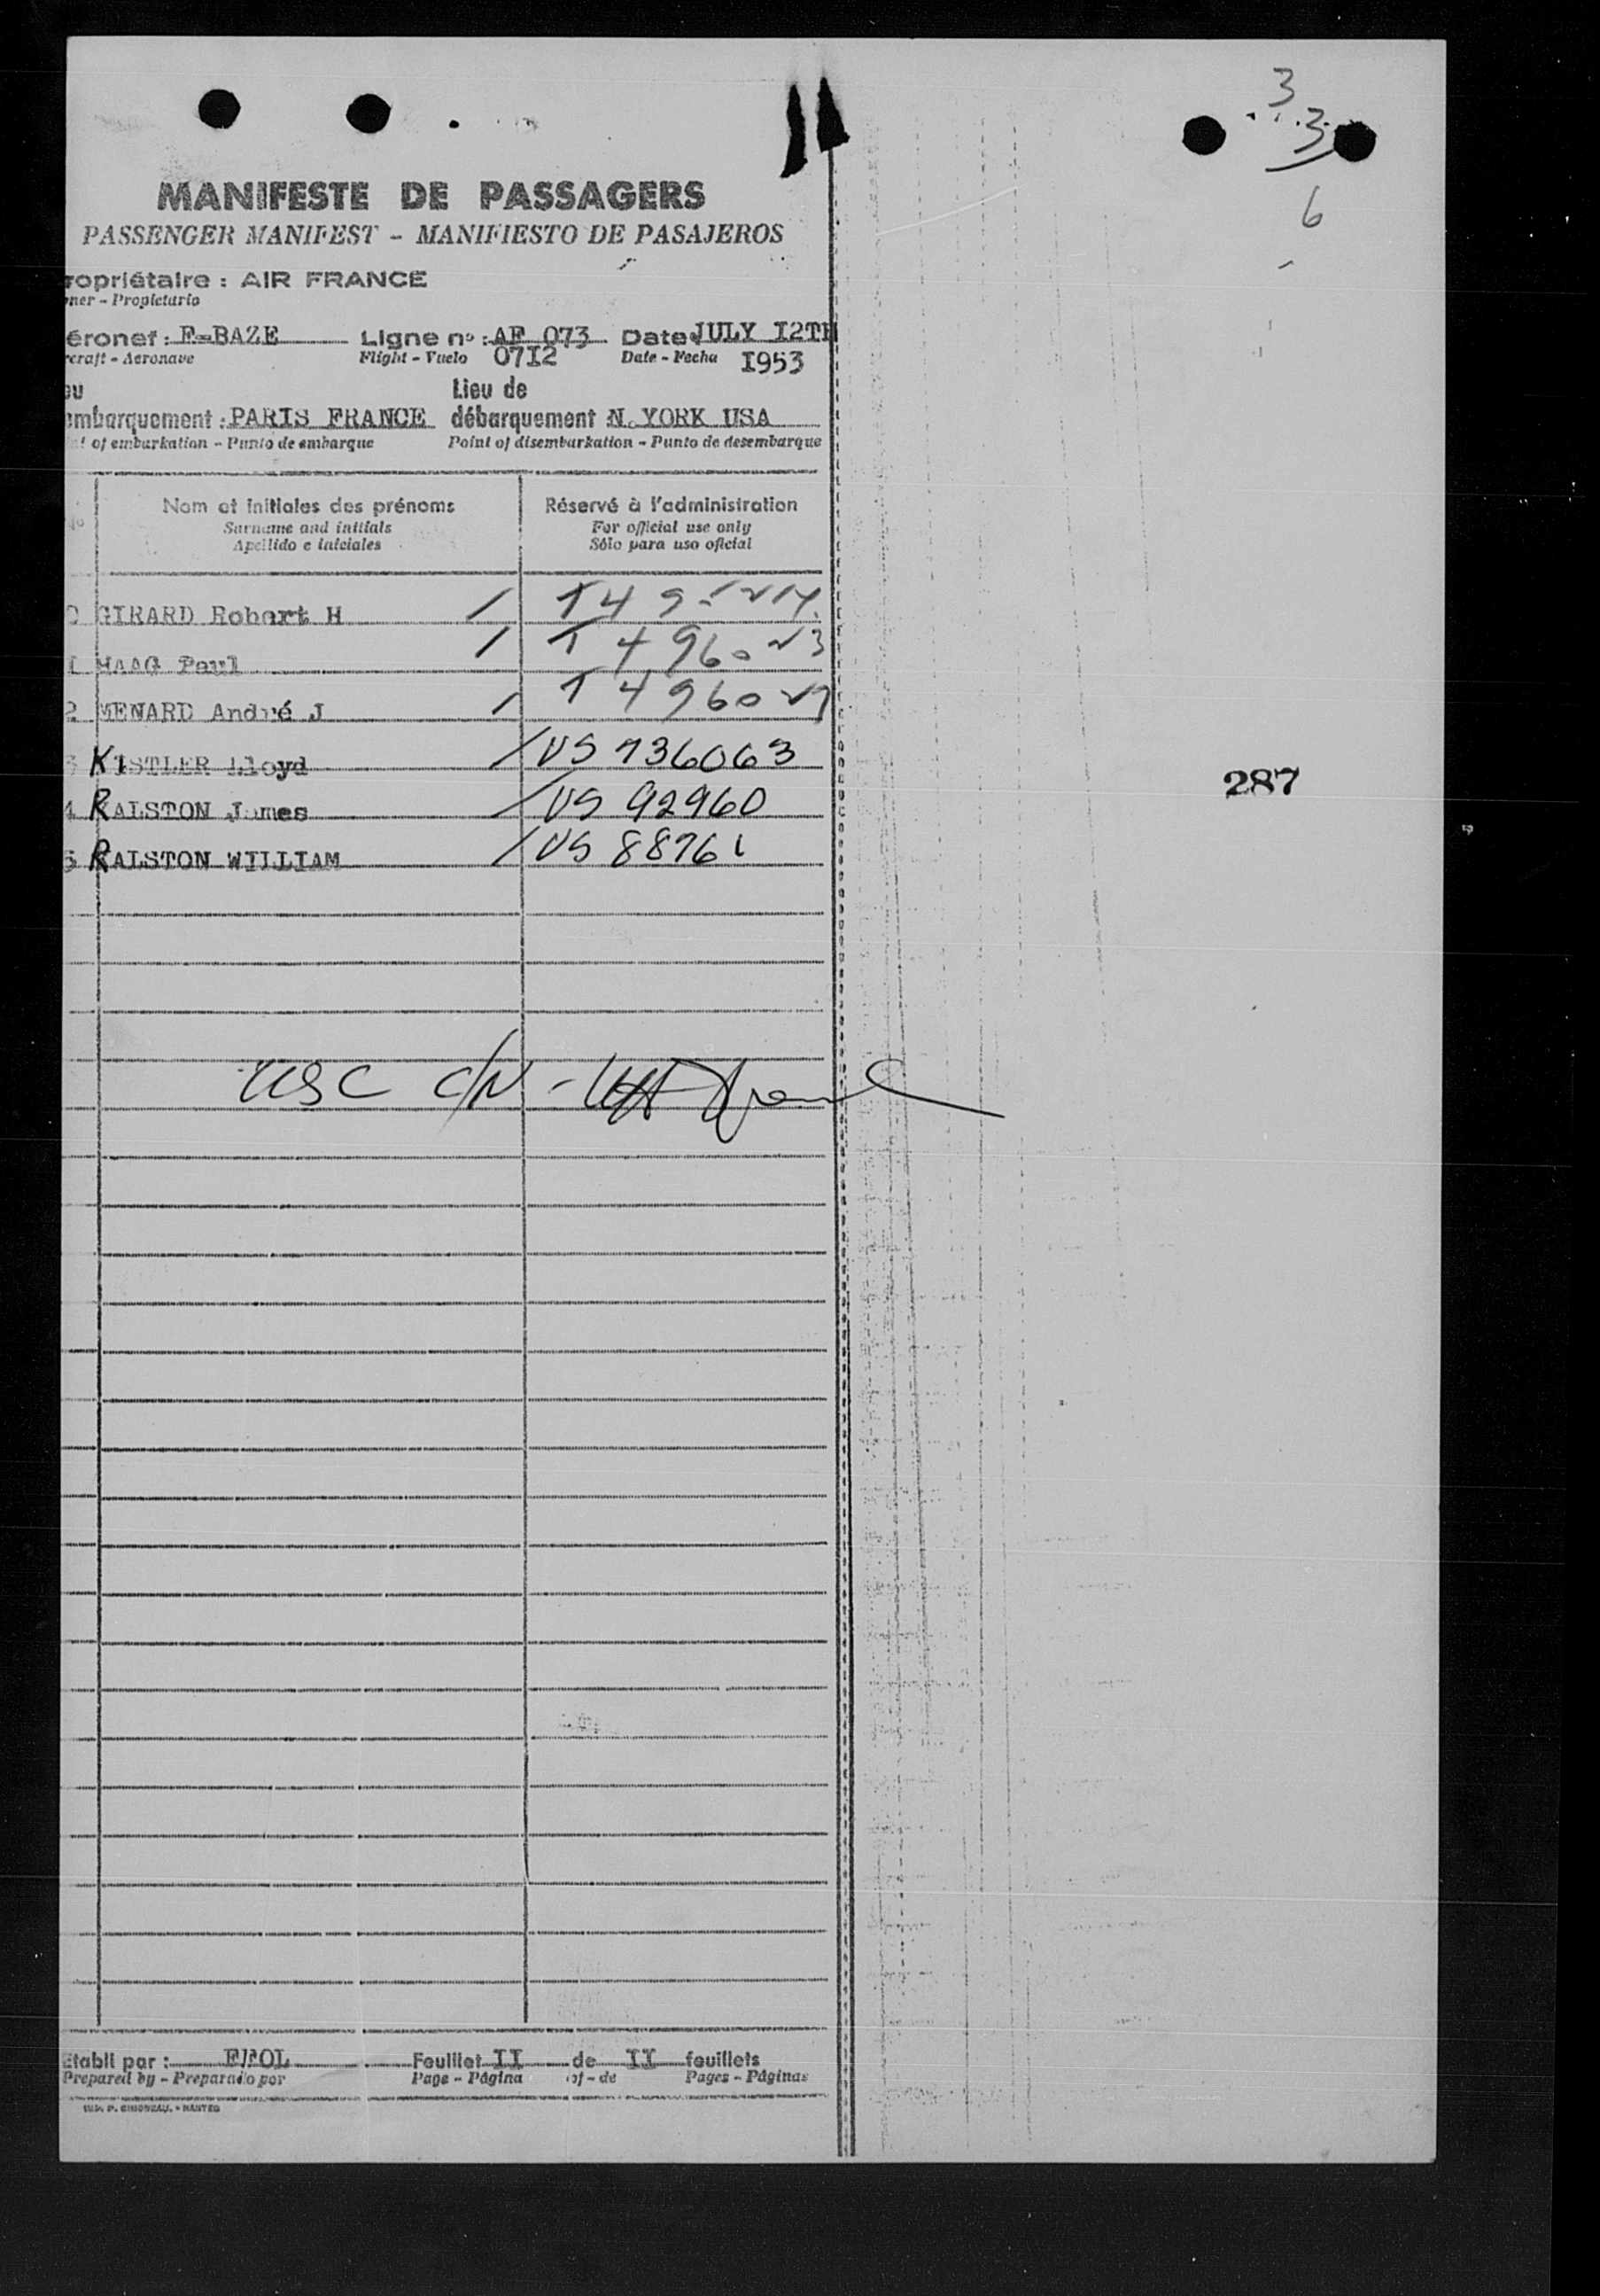 3
3
6
MANIFESTE DE PASSAGERS
PASSENGER MANIFEST - MANIFIESTO DE PASAJEROS
ropriétaire : AIR FRANCE
ner - Propietario
éronef : F-BAZE Ligne no : AF 073 Date JULY I2TH
craft - Aeronave Flight - Vuelo 07I2 Date - Fecha I953
eu Lieu de
embarquement : PARIS FRANCE débarquement N.YORK USA
of embarkation - Punto de embarque Point of disembarkation - Punto de desembarque
No Nom et initiales des prénoms Réservé à l'administration
Surname and initials For official use only
Apellido e iniciales Sólo para uso oficial
0 GIRARD Robert H / T
I HAAG Paul / T 4960
2 MENARD André J / T 4960
3 KISTLER Lloyd / VS 736063
4 RALSTON James / VS 92960
5 RALSTON WILLIAM / VS 88761
287
USC
Etabli par : Feuillet II de II feuillets
Prepared by - Preparado por Page - Página of - de Pages - Páginas